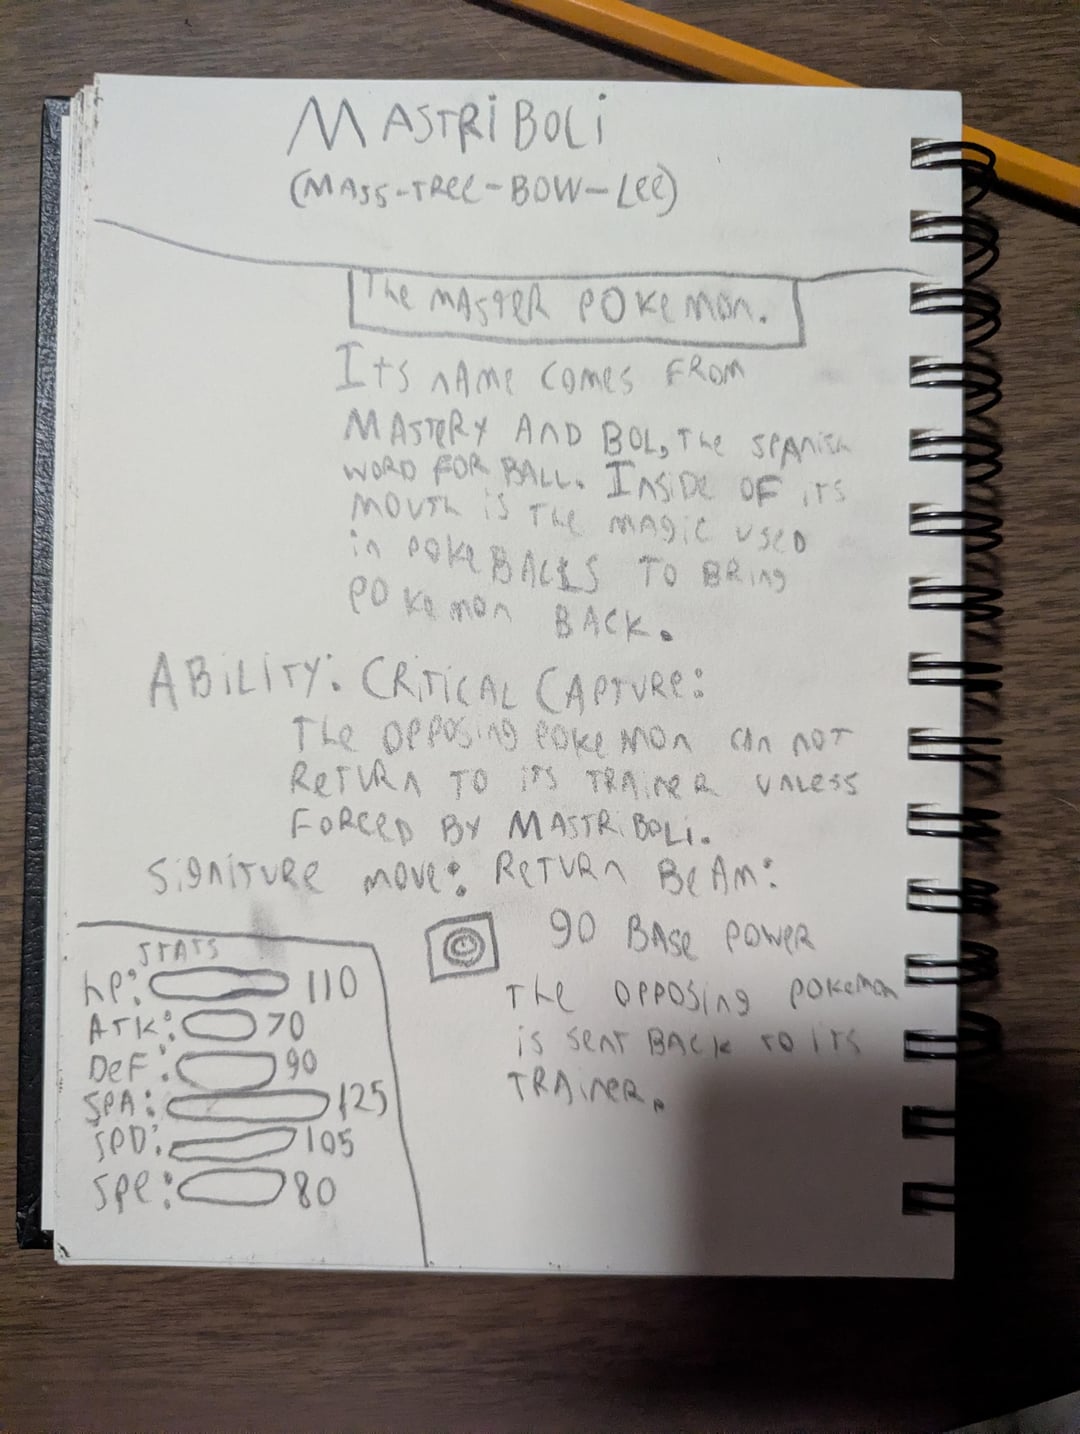 MASTRiBOLi
(MASS-TREE-BOW-LEE)
The MASTER POKEMON.
ITS NAME COMES FROM
MASTERY AND BOL, THE SPANISH
WORD FOR BALL. INSIDE OF iTS
MOUTH iS THE MAGIC USED
in POKEBALLS TO BRing
POKEMON BACK.
ABiLiTY: CRiTiCAL CAPTURE:
THE OPPOSing POKEMON CAN NOT
RETURN TO iTS TRAINER UNLESS
FORCED BY MASTRiBOLi.
SigniTURE MOVE: RETURN BEAM:
90 BASE POWER
THE OPPOSing POKEMON
iS SENT BACK TO iTS
TRAiNER.
STATS
hP: 110
ATK: 70
DEF: 90
SPA: 125
SPD: 105
SPE: 80